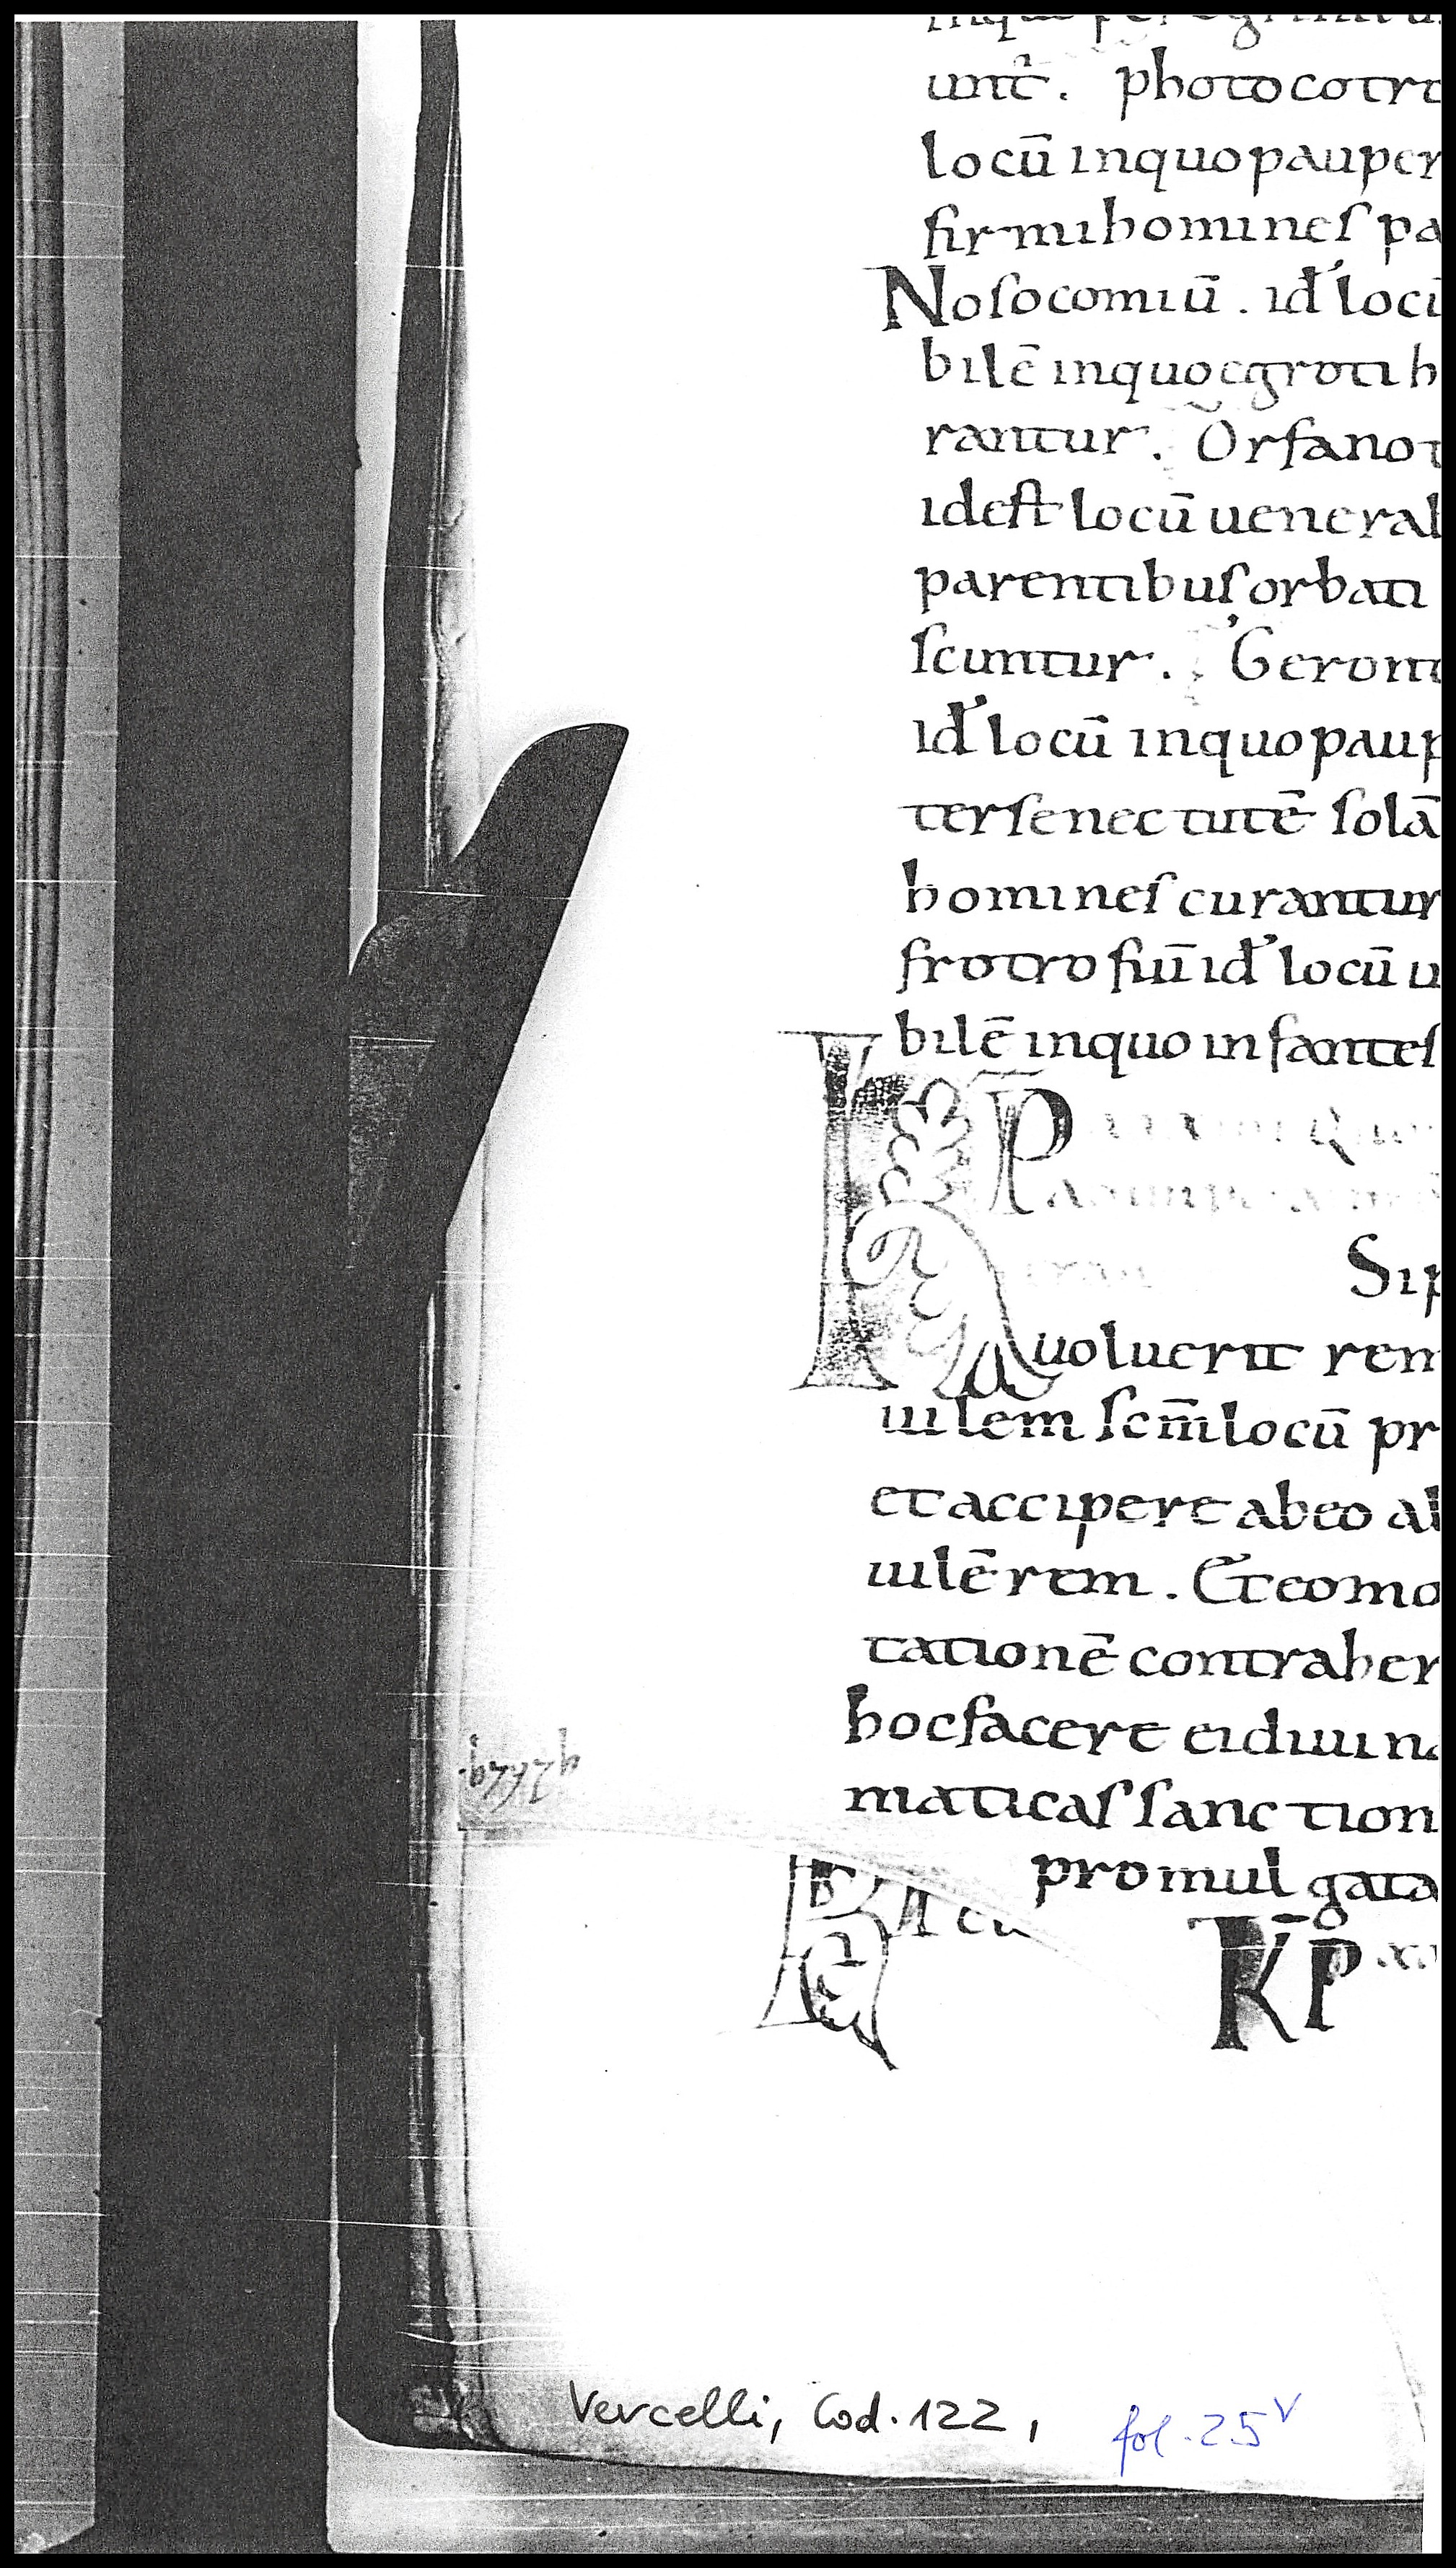 unt̄. photocotro
locū inquopauper
firmihominespa
Nosocomiū. id locū
bilē inquoegrotih
rantur. Orfanot
idest locūuenerab
parentibusorbati
scuntur. Geront
id locū inquopaup
tersenectutē solā
hominescurantur
frotrofiū id locū u
bilē inquoinfantes
Sip
uoluerit rem
uilem scm̄ locū pr
et accipere abeo al
uilē rem. Et eomo
tationē contraher
hocfacere eidiuina
maticas sanction
promulgata
KP
Vercelli, Cod. 122, fol. 25v